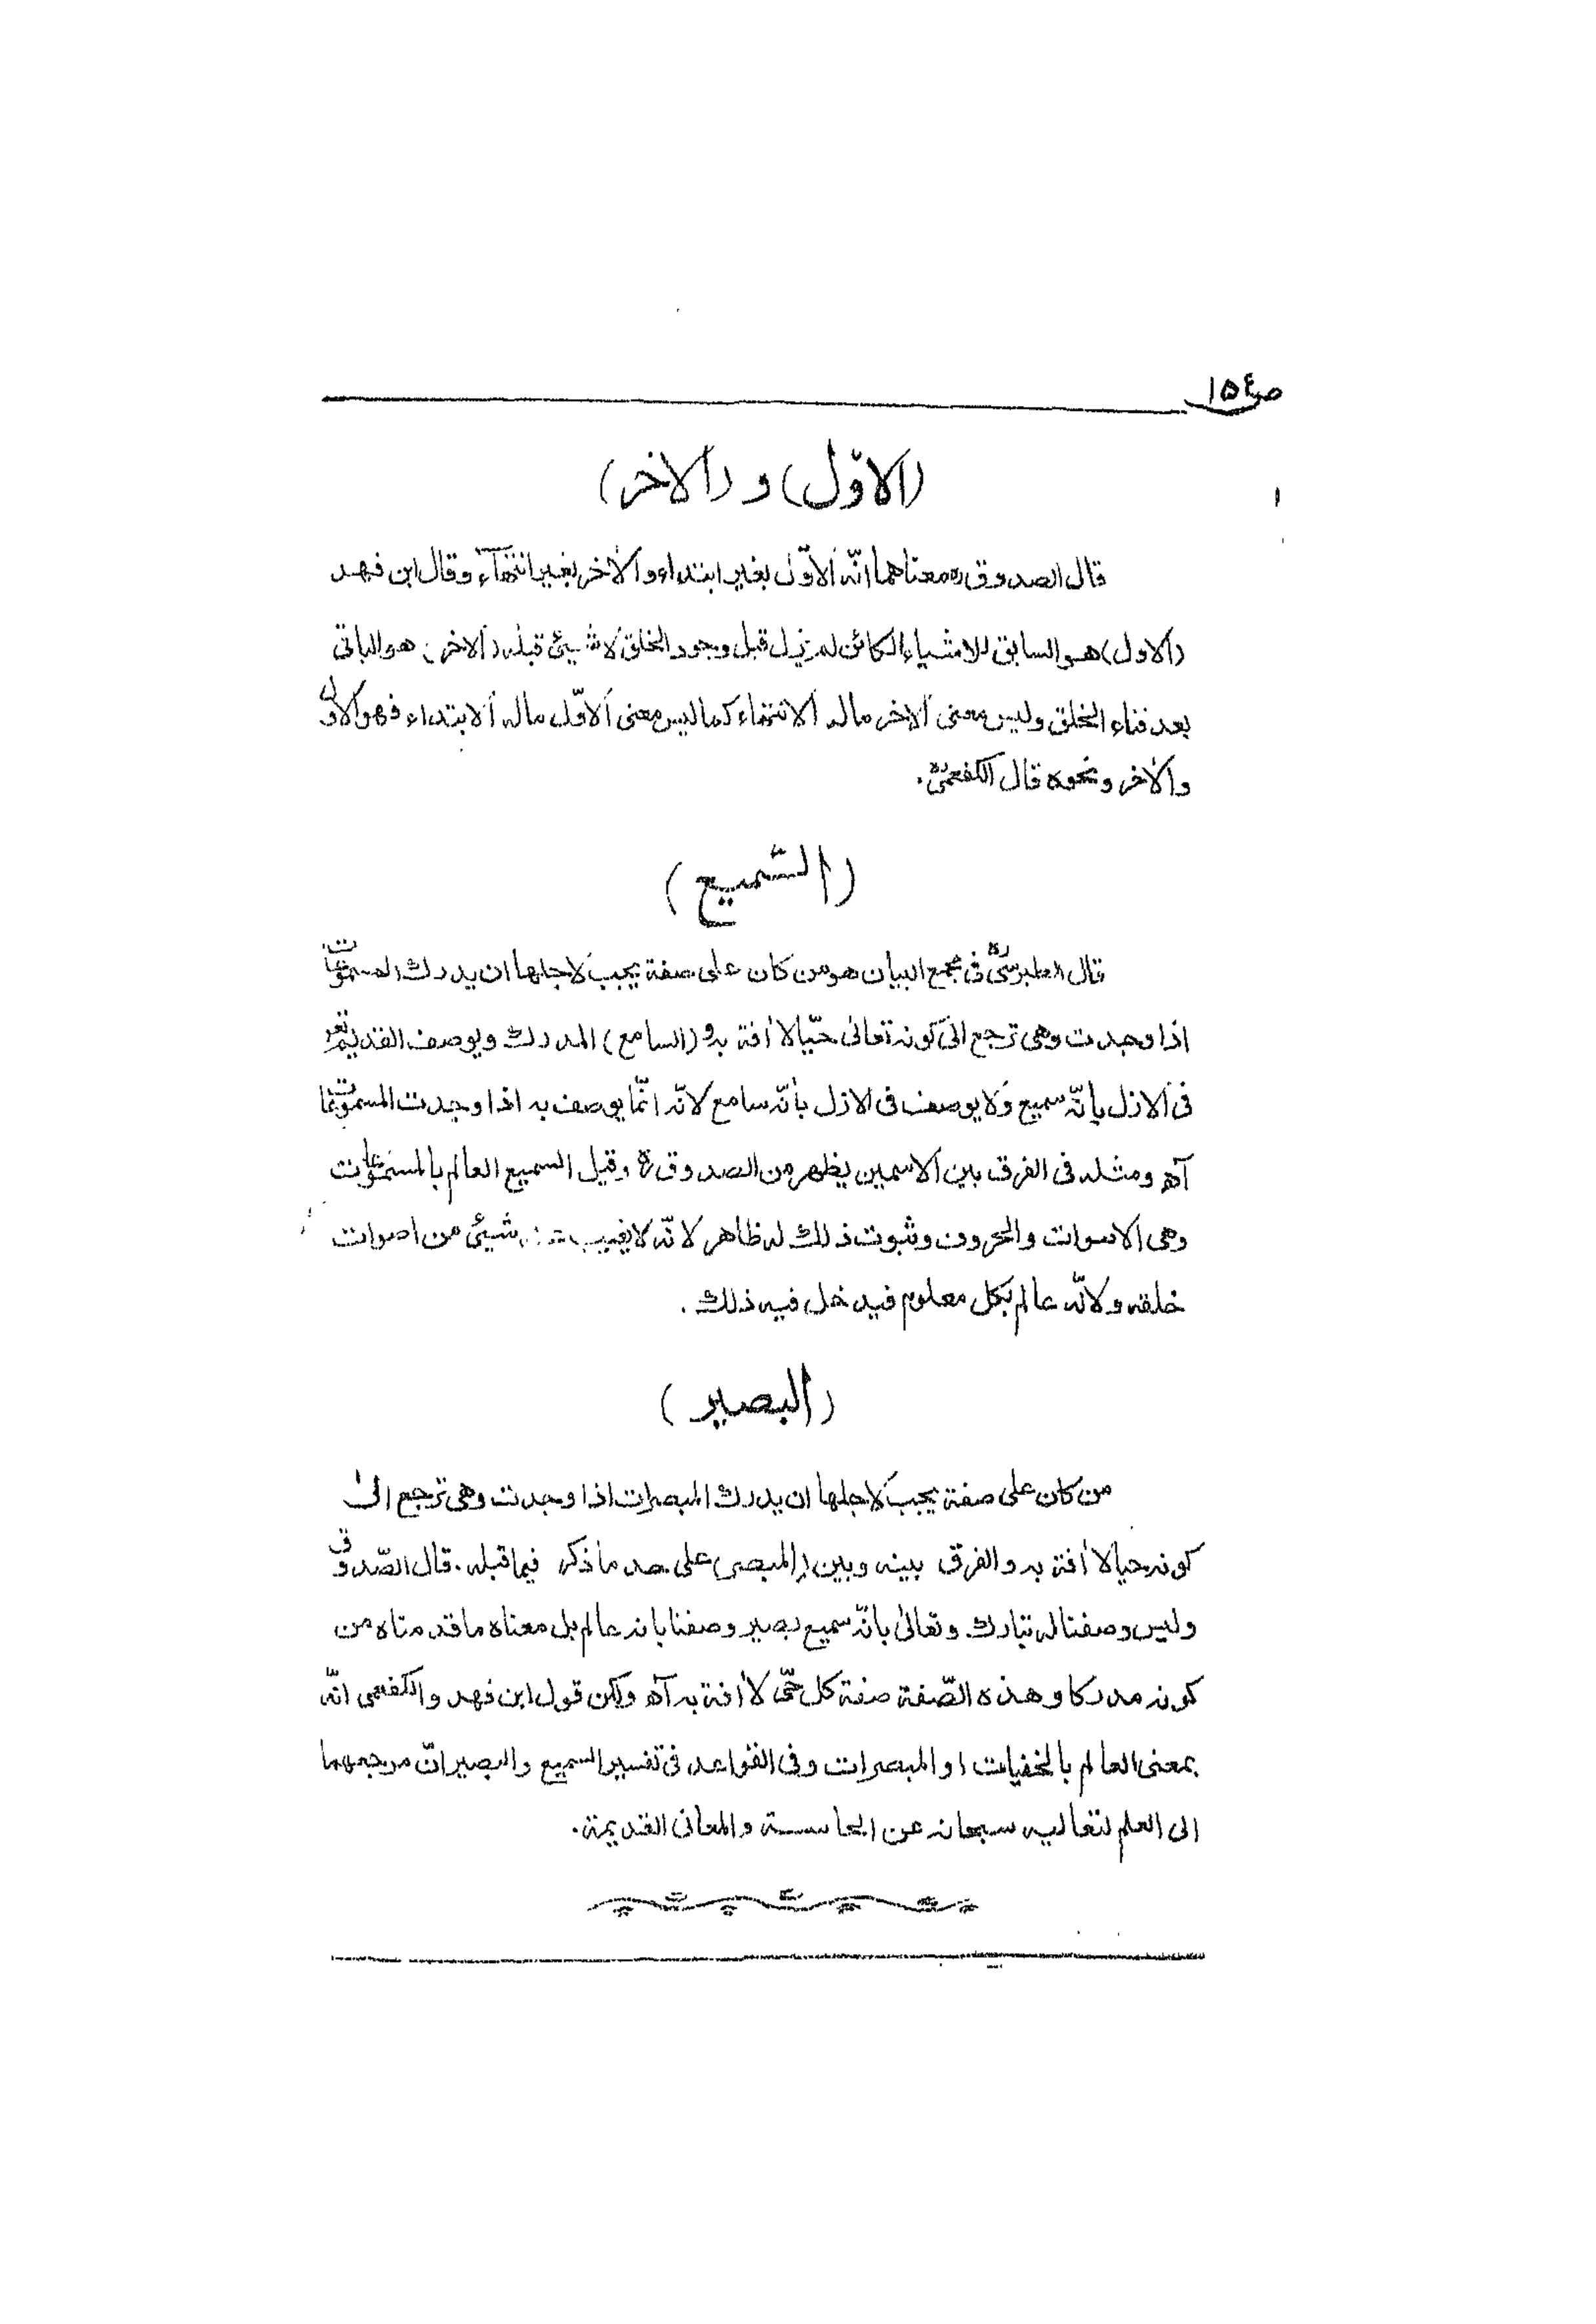 ص١٥٤
(الاوّل) و (الاخر)
قال الصدوق ره معناهما انّه الاوّل بغير ابتداء والأخر بغير انتهاء وقال ابن فهد
(الاول) هو السابق للاشياء الكائن لم يزل قبل وجود الخلق لا شيئ قبله (الاخر) هو الباقي
بعد فناء الخلق وليس معنى الاخر ماله الانتهاء كما ليس معنى الاوّل ماله الابتداء فهو الاول
والأخر ونحوه قال الكفعمىّ ره.
(السّميع)
قال الطبرسىّ ره فى مجمع البيان هو من كان على صفة يجب لاجلها ان يدرك المسموعات
اذا وجدت وهى ترجع الى كونه تعالىٰ حيّا لا أفة به و (السامع) المدرك ويوصف القديم تعر
فى الازل بأنّه سميع ولا يوصف فى الازل بأنّه سامع لانّه انّما يوصف به اذا وجدت المسموعات
آه ومثله فى الفرق بين الاسمين يظهر من الصدوق ره وقيل السميع العالم بالمسموعات
وهى الاصوات والحروف وثبوت ذلك له ظاهر لانّه لا يغيب شيئ من اصوات
خلقه ولانّه عالم بكل معلوم فيدخل فيه ذلك.
(البصير)
من كان على صفة يجب لاجلها ان يدرك المبصرات اذا وجدت وهى ترجع الىٰ
كونه حيا لا أفة به والفرق بينه وبين (المبصر) على حد ما ذكر فيما قبله. قال الصّدوق
وليس وصفنا له تبارك وتعالىٰ بانّه سميع بصير وصفنا بانه عالم بل معناه ما قدمناه من
كونه مدركا وهذه الصّفة صفة كل حىّ لا أفة به آه ولكن قول ابن فهد والكفعمى انّه
بمعنى العالم بالخفيات او المبصرات وفى القواعد فى تفسير السميع والبصير انّ مرجعهما
الى العلم لتعاليه سبحانه عن الحاسة والمعانى القديمة.